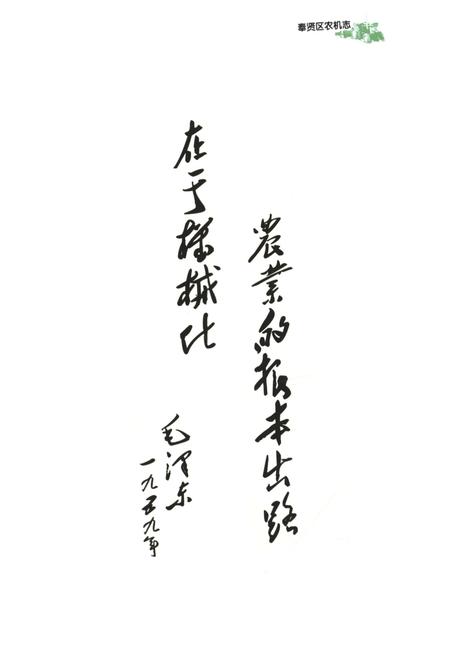 奉贤区农机志
農業的根本出路
在于機械化
毛澤东
一九五九年